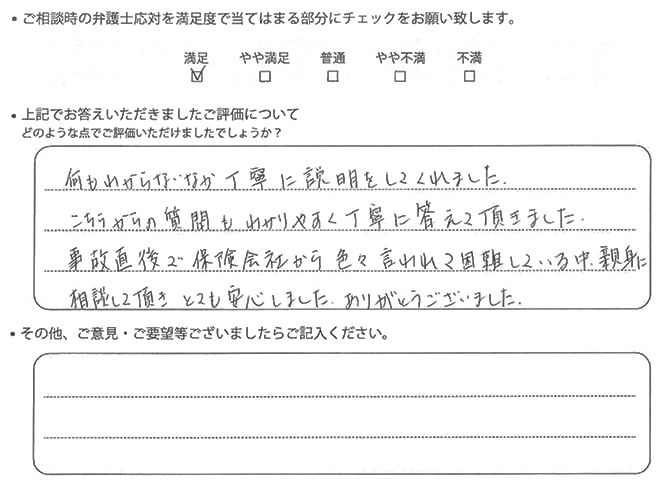 • ご相談時の弁護士応対を満足度で当てはまる部分にチェックをお願い致します。
満足 やや満足 普通 やや不満 不満
☑ ☐ ☐ ☐ ☐
• 上記でお答えいただきましたご評価について
どのような点でご評価いただけましたでしょうか？
何もわからないなか丁寧に説明をしてくれました.
こちらからの質問もわかりやすく丁寧に答えて頂きました.
事故直後で保険会社から色々言われて困難している中、親身に
相談して頂きとても安心しました. ありがとうございました.
• その他、ご意見・ご要望等ございましたらご記入ください。